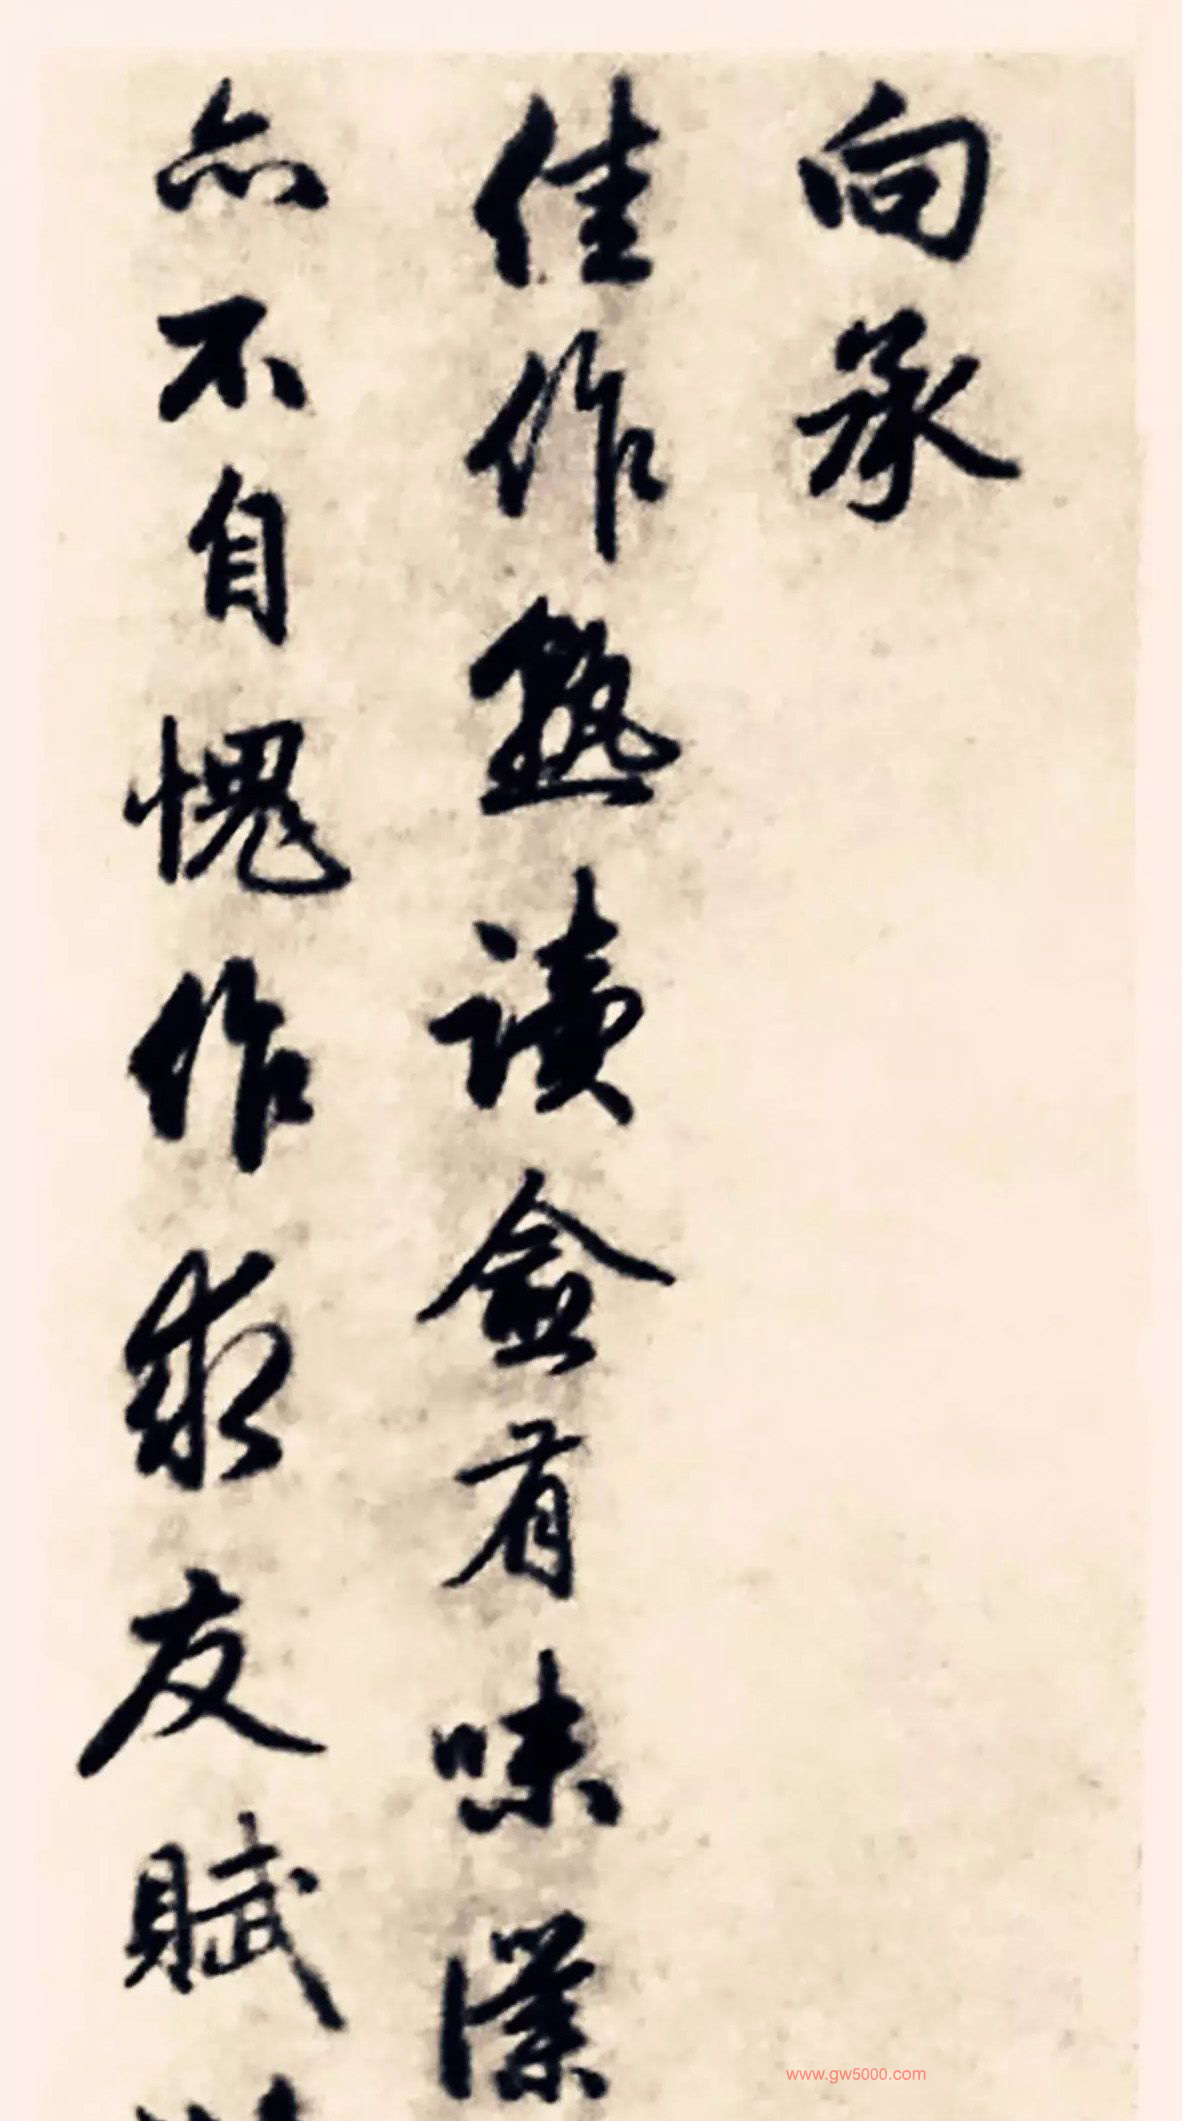 向承
佳作熟读有味僕
亦不自愧作友賦
www.gw5000.com